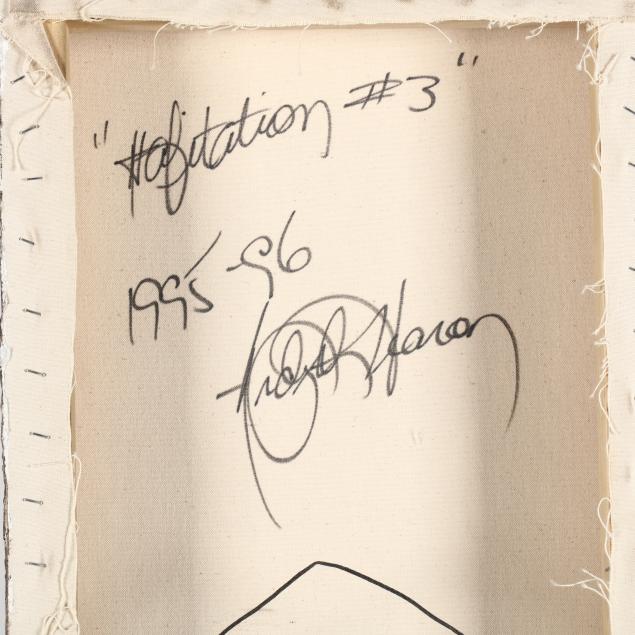 "Habitation #3"
1995-96